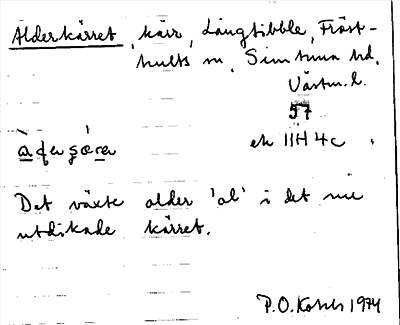 Alderkärret, kärr, Långtibble, Fröst-
hults sn, Simtuna hd,
Västm. l.
57
ek 11H4c.
Det växte alder 'al' i det nu
utdikade kärret.
P.O. 1974